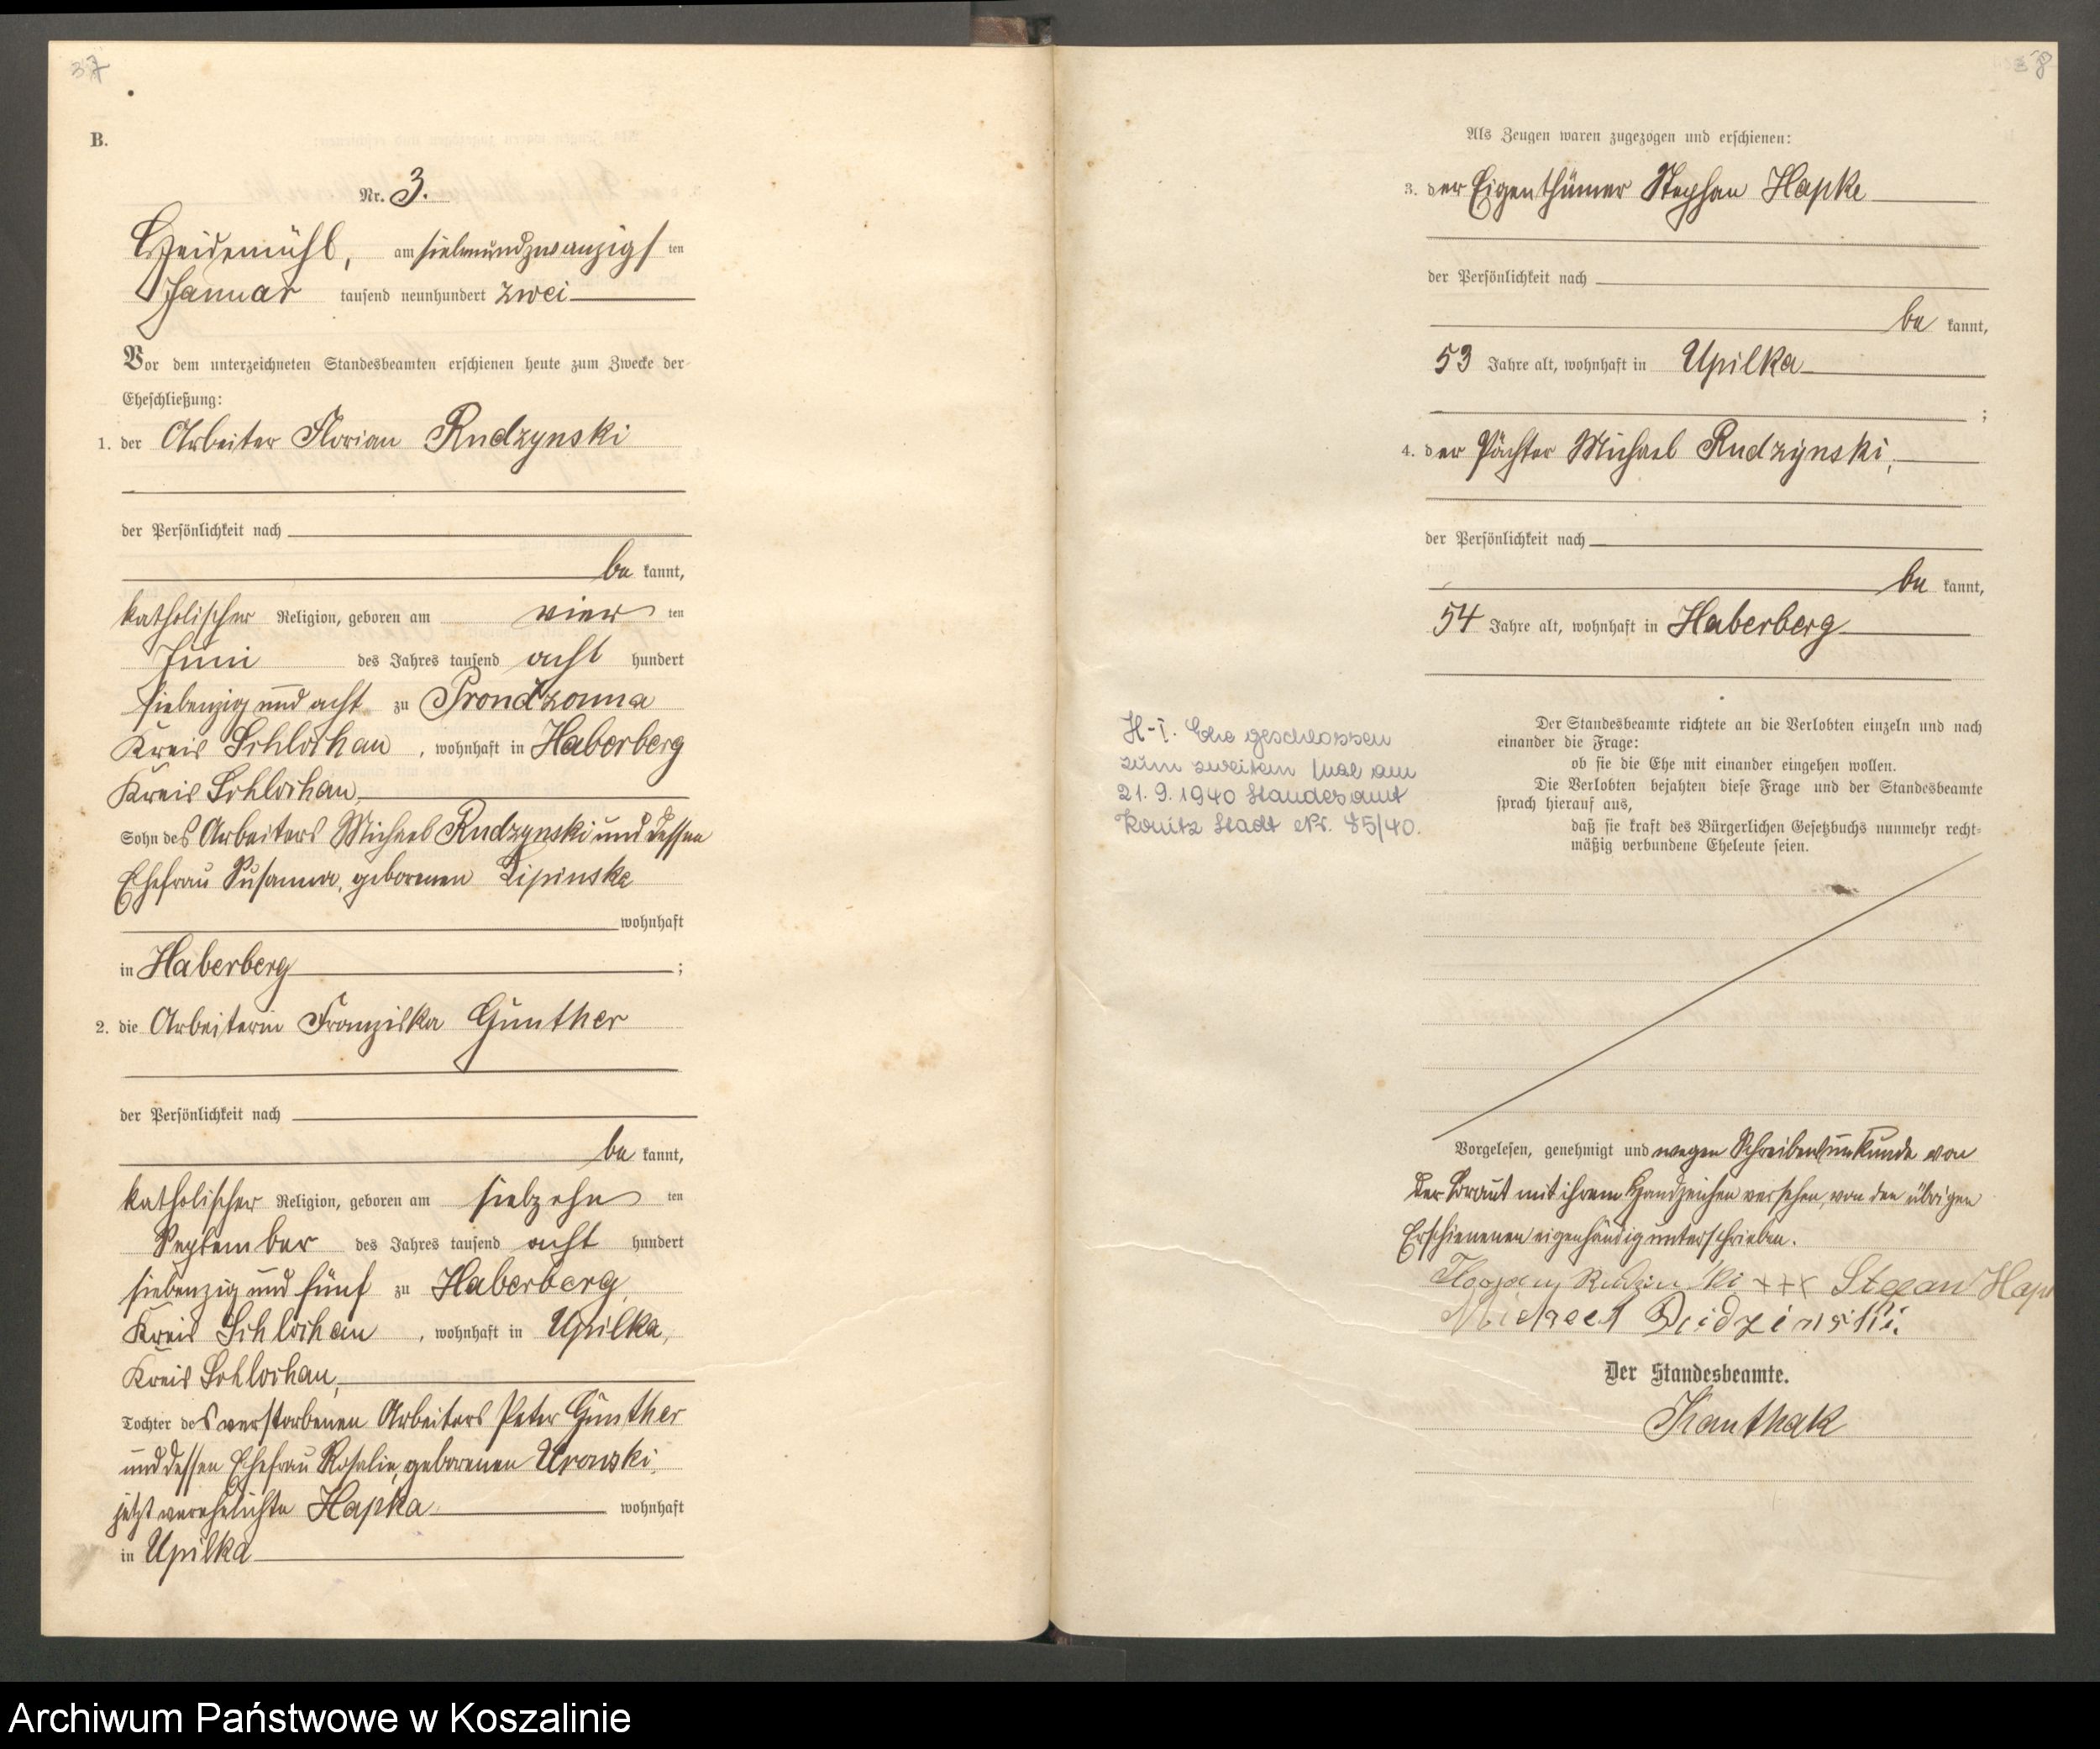 37
B.
Nr. 3.
Heidemühl, am siebenundzwanzigs ten
Januar tausend neunhundert zwei
Vor dem unterzeichneten Standesbeamten erschienen heute zum Zwecke der
Eheschließung:
1. der Arbeiter Florian Rudzynski
der Persönlichkeit nach
be kannt,
katholischer Religion, geboren am vier ten
Juni des Jahres tausend acht hundert
siebenzig und acht zu Prondzonna
Kreis Schlochau, wohnhaft in Haberberg
Kreis Schlochau,
Sohn des Arbeiters Michael Rudzynski und dessen
Ehefrau Susanna, geborenen Lipinske
wohnhaft
in Haberberg ;
2. die Arbeiterin Franziska Günther
der Persönlichkeit nach
be kannt,
katholischer Religion, geboren am siebzehn ten
September des Jahres tausend acht hundert
siebenzig und fünf zu Haberberg,
Kreis Schlochau, wohnhaft in Upilka,
Kreis Schlochau,
Tochter des verstorbenen Arbeiters Peter Günther
und dessen Ehefrau Rosalie, geborenen Uronski,
jetzt verehelichte Hapka wohnhaft
in Upilka
38
Als Zeugen waren zugezogen und erschienen:
3. der Eigenthümer Stephan Hapke
der Persönlichkeit nach
be kannt,
53 Jahre alt, wohnhaft in Upilka
;
4. der Pächter Michael Rudzynski,
der Persönlichkeit nach
be kannt,
54 Jahre alt, wohnhaft in Haberberg
Der Standesbeamte richtete an die Verlobten einzeln und nach
einander die Frage:
ob sie die Ehe mit einander eingehen wollen.
Die Verlobten bejahten diese Frage und der Standesbeamte
sprach hierauf aus,
daß sie kraft des Bürgerlichen Gesetzbuchs nunmehr recht-
mäßig verbundene Eheleute seien.
H-I. Ehe geschlossen
zum zweiten Mal am
21. 9. 1940 Standesamt
Konitz Stadt Nr. 85/40.
Vorgelesen, genehmigt und wegen Schreibensunkunde von
der Braut mit ihrem Handzeichen versehen, von den übrigen
Erschienenen eigenhändig unterschrieben.
+++ Stefan Hapk
Michael
Der Standesbeamte.
Kanthak
Archiwum Państwowe w Koszalinie